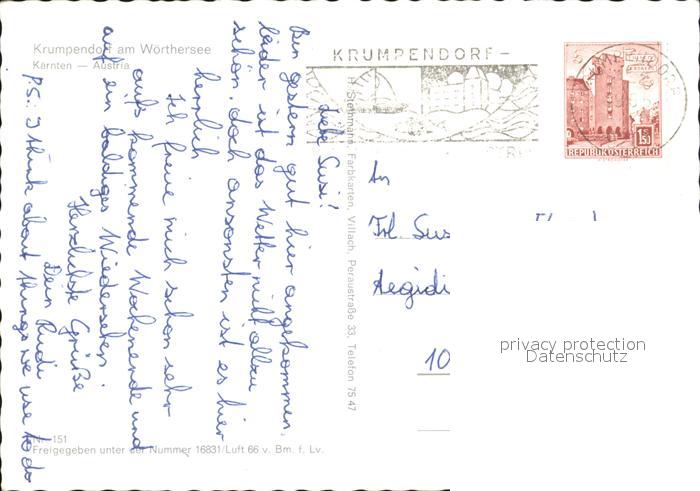 Krumpendorf am Wörthersee
Kärnten — Austria
Liebe Susi!
Bin gestern gut hier angekommen,
leider ist das Wetter nicht allzu
schön, doch ansonsten ist es hier
herrlich
Ich freue mich schon sehr
aufs kommende Wochenende und
auf ein baldiges Wiedersehen.
Herzlichste Grüße
Dein Rudi
P.S.: I think about things we use to do
Nr. 151
Freigegeben unter der Nummer 16831/Luft 66 v. Bm. f. Lv.
Stethmahr, Farbkarten, Villach, Peraustraße 33, Telefon 75 47
KRUMPENDORF-
1.50
REPUBLIK ÖSTERREICH
An
Frl. Sus
Aegidi
10
privacy protection
Datenschutz